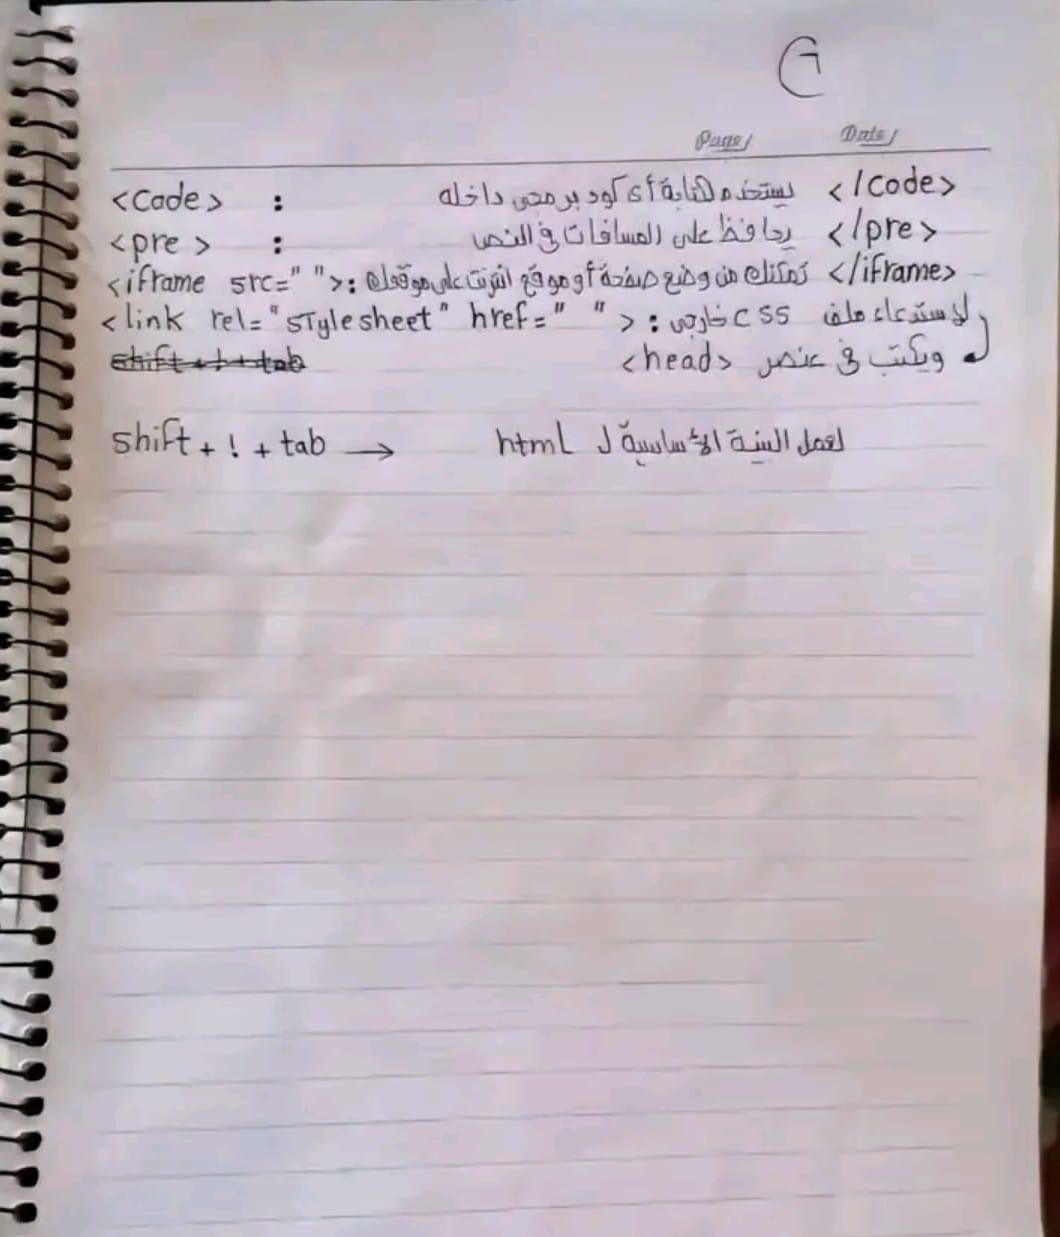 Page/ Date/
<code> : يستخدم لكتابة أى كود برمجى داخله </code>
<pre> : يحافظ على المسافات فى النص </pre>
<iframe src=" "> : تمكنك من وضع صفحة أو موقع انترنت على موقعك </iframe>
<link rel="stylesheet" href=" "> : لاستدعاء ملف css خارجى
shift + ! + tab ويكتب فى عنصر <head>
shift + ! + tab → لعمل البنية الأساسية ل html